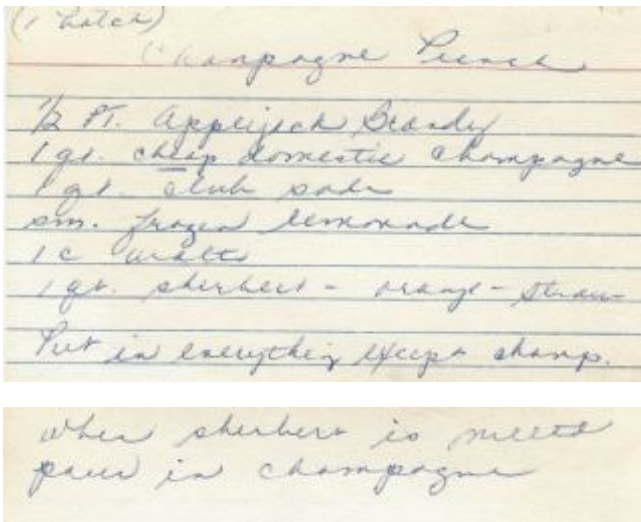 (1 batch)
Champagne Punch
1/2 PT. applejack Brandy
1 qt. cheap domestic champagne
1 qt. club soda
sm. frozen lemonade
1 c water
1 qt. sherbert - orange - straw-
Put in everything except champ.
When sherbert is melted
pour in champagne